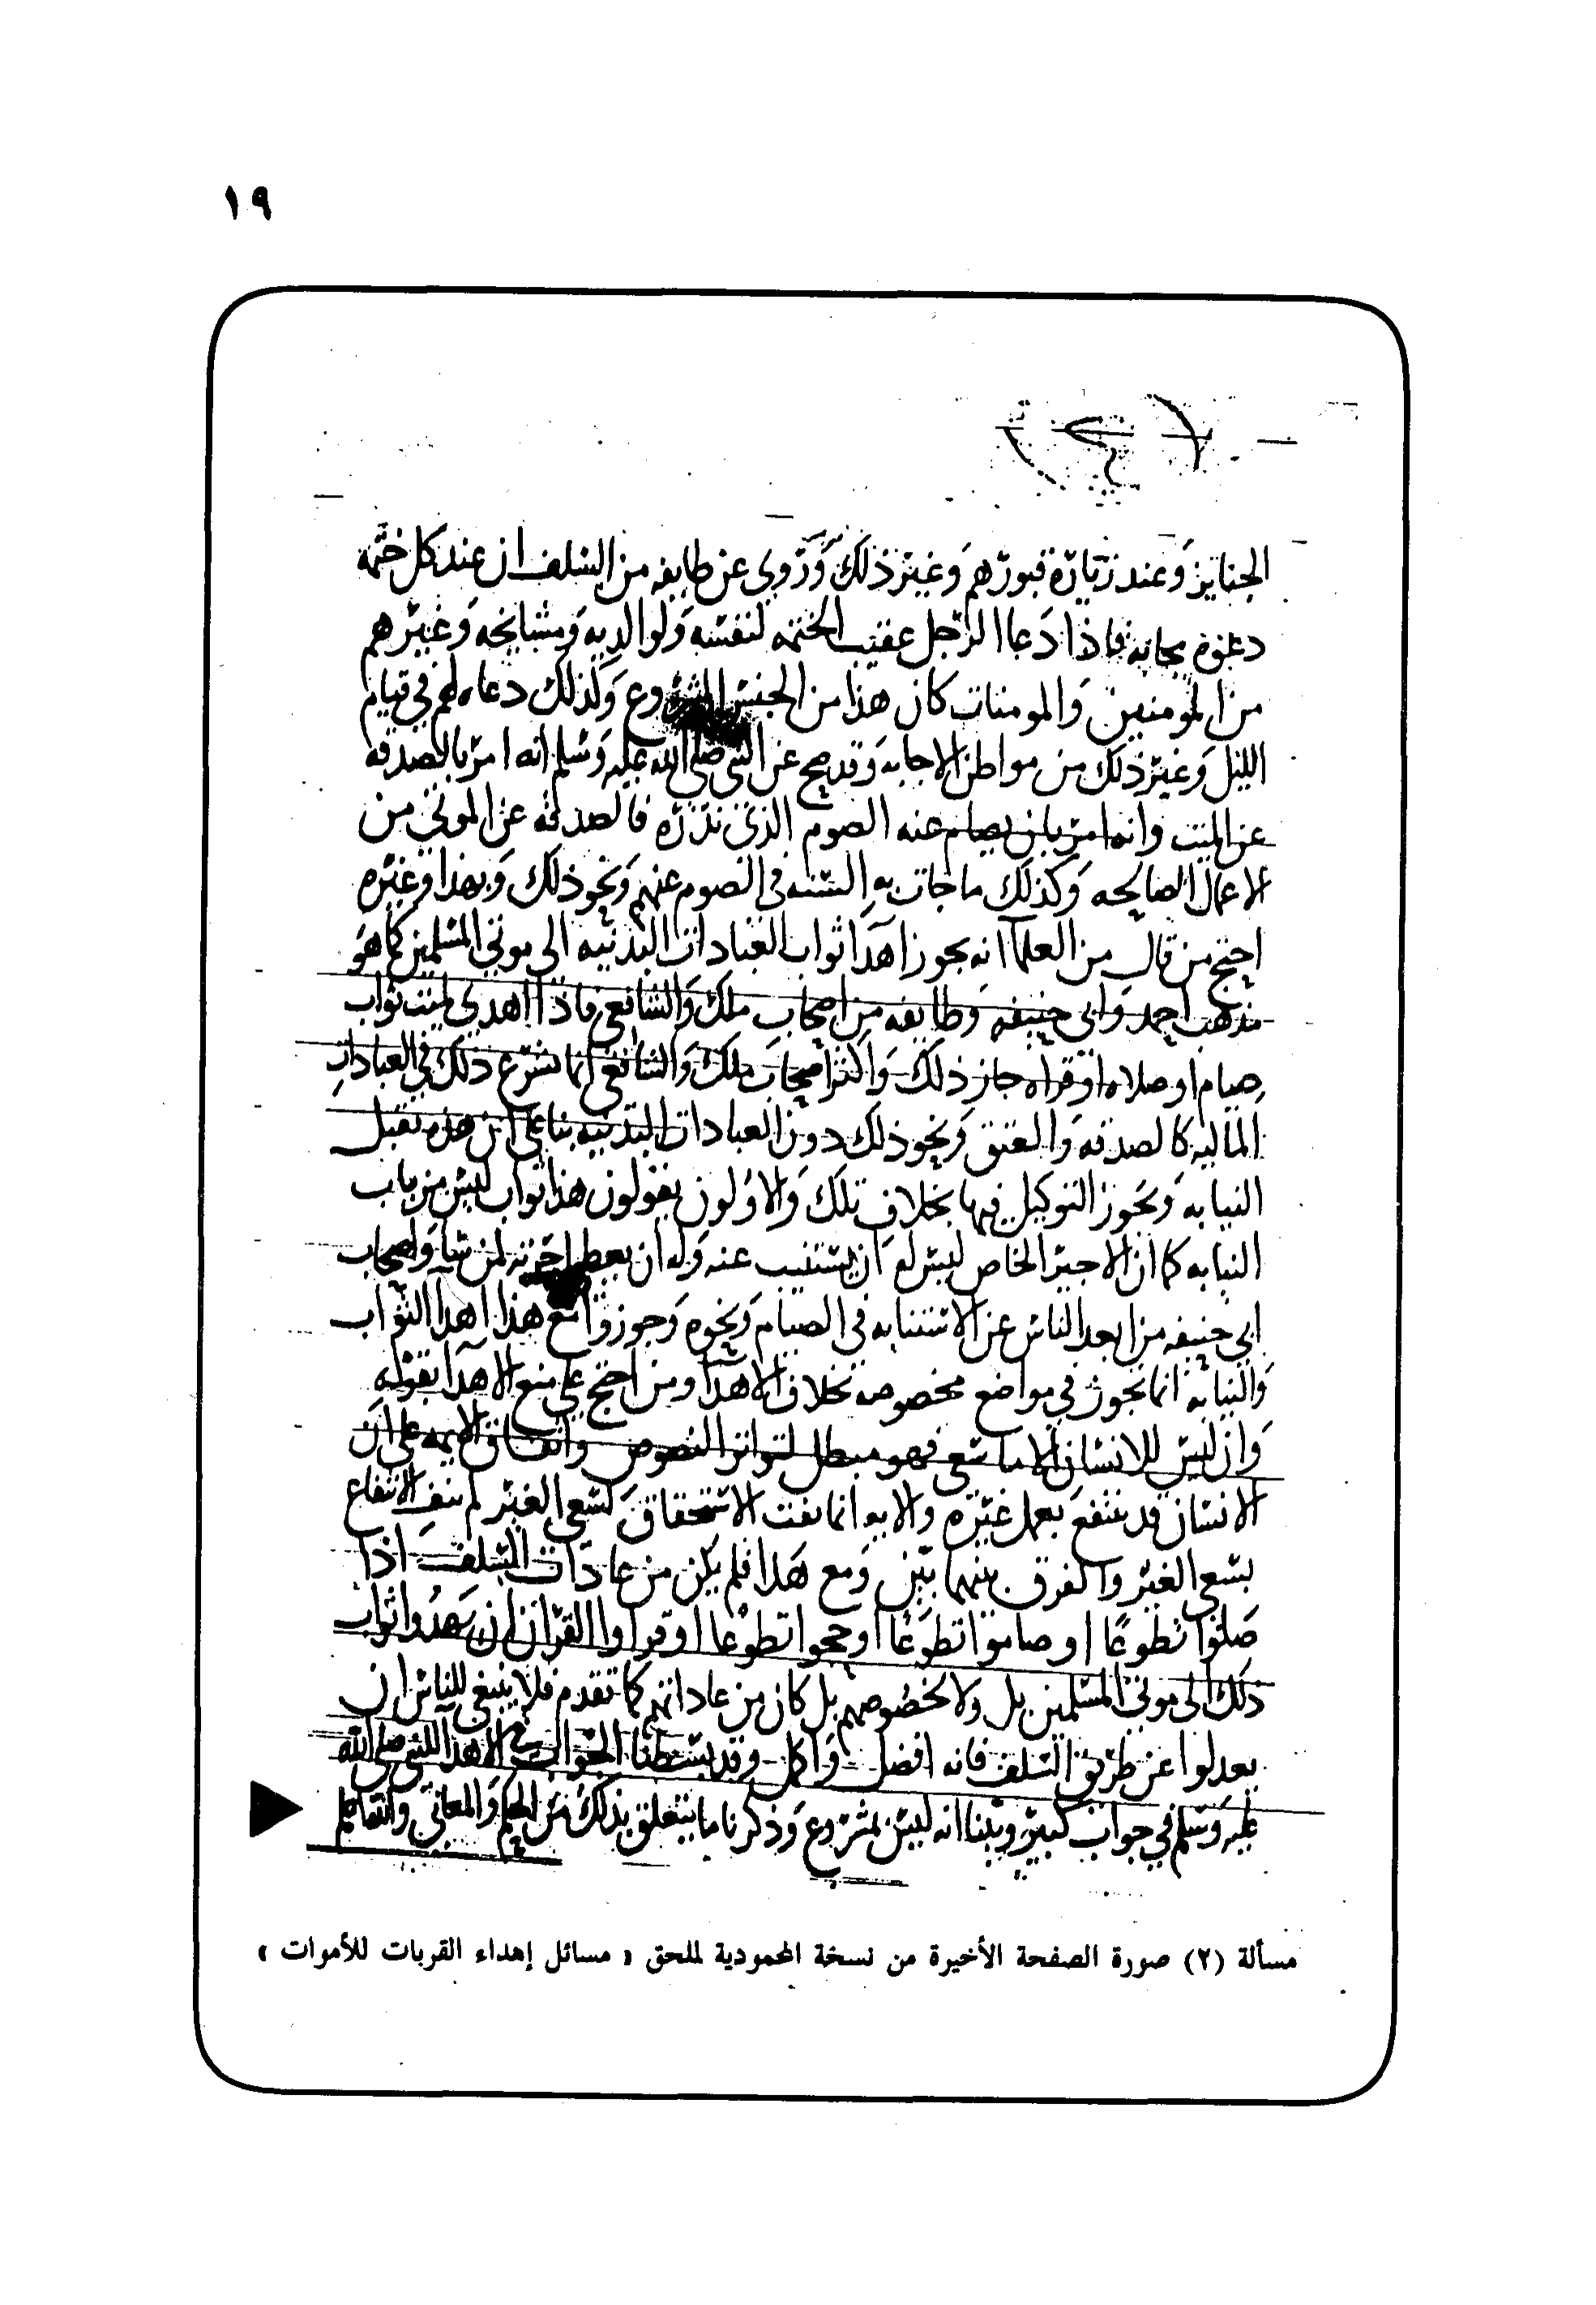 ١٩
الجنايز وعند زيارة قبورهم وغير ذلك وروي عن طايفه من السلف ان عند كل ختمه
دعوة مجابه فاذا دعا الرجل عقيب الختمه لنفسه ولوالديه ومشايخه وغيرهم
من المومنين والمومنات كان هذا من الجنس المشروع وكذلك دعاه لهم في قيام
الليل وغير ذلك من مواطن الاجابه وقد صح عن النبي صلى الله عليه وسلم انه امر بالصدقه
عن الميت وانه امر بان يصام عنه الصوم الذي نذره فالصدقه عن الموتي من
الاعمال الصالحه وكذلك ما جات به السنه في الصوم عنهم ونحو ذلك وبهذا وغيره
احتج من قال من العلما انه يجوز اهدا ثواب العبادات البدنيه الى موتي المسلمين كما هو
مذهب احمد وابي حنيفه وطايفه من اصحاب ملك والشافعي فاذا اهدي لميت ثواب
صيام او صلاه او قراه جاز ذلك واكثر اصحاب ملك والشافعي انما شرع ذلك في العبادات
الماليه كالصدقه والعتق ونحو ذلك دون العبادات البدنيه بنا على ان هذه تقبل
النيابه ويجوز التوكيل فيها بخلاف تلك والاولون يقولون هذا ثواب ليس من باب
النيابه كما ان الاجير الخاص ليس له ان يستنيب عنه وله ان يعطي اجرته لمن شا واصحاب
ابي حنيفه من ابعد الناس عن الاستنابه في الصيام ونحوه وجوزوا مع هذا اهدا الثواب
والنيابه انما تجوز في مواضع مخصوصه بخلاف الاهدا ومن احتج على منع الاهدا بقوله
وان ليس للانسان الا ما سعى فهو مبطل لتواتر النصوص واتفاق الايمه على ان
الانسان قد ينتفع بعمل غيره والايه انما نفت الاستحقاق لسعي الغير لم ينف الانتفاع
بسعي الغير والفرق بينهما بين ومع هذا فلم يكن من عادات السلف اذا
صلوا تطوعًا او صاموا تطوعًا او حجوا تطوعًا او قراوا القران ان يهدوا ثواب
ذلك الى موتي المسلمين بل ولا بخصوصهم بل كان من عاداتهم كما تقدم فلا ينبغي للناس ان
يعدلوا عن طريق السلف فانه افضل واكمل وقد بسطنا الجواب في الاهدا للنبي صلى الله
عليه وسلم في جواب كبير وبينا انه ليس بمشروع وذكرنا ما يتعلق بذلك من الحكم والمعاني والله اعلم
مسألة (٢) صورة الصفحة الأخيرة من نسخة المحمودية لملحق « مسائل إهداء القربات للأموات »